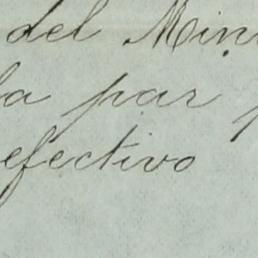 del Min
la par p
efectivo